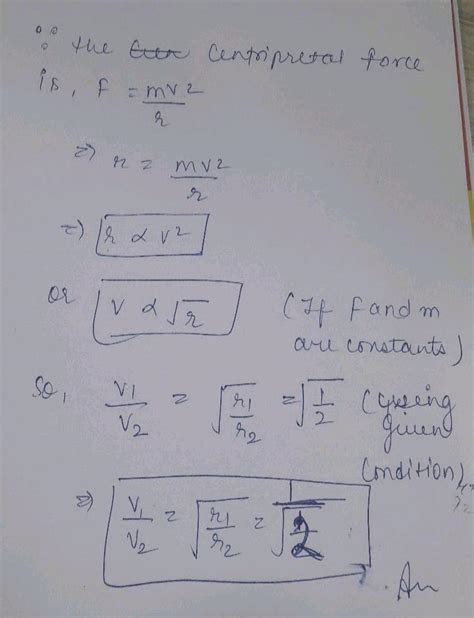 ∵ the centripretal force
is, F = mv²/r
=) r = mv²/r
=) r ∝ v²
or v ∝ √r (If F and m
are constants)
So, v₁/v₂ = √(r₁/r₂) = √(1/2) (using
given
condition)
=) v₁/v₂ = √(r₁/r₂) = √(1/2)
An